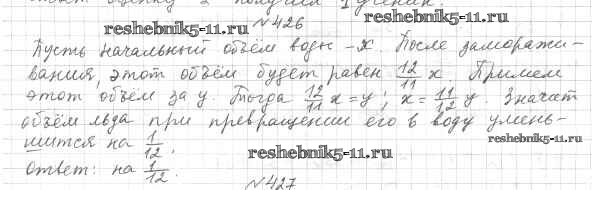 ответ оценку 2 получил 1 ученик
reshebnik5-11.ru
№426
reshebnik5-11.ru
Пусть начальный объём воды - x. После заморажи-
вания, этот объём будет равен 12/11 x. Примем
этот объём за y. Тогда 12/11 x = y; x = 11/12 y. Значит
объём льда при превращении его в воду умень-
шится на 1/12.
reshebnik5-11.ru
Ответ: на 1/12.
reshebnik5-11.ru
№427